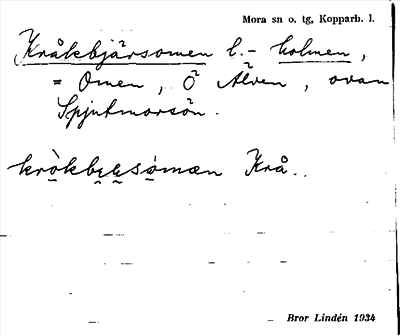 Mora sn o. tg, Kopparb. l.
Kråkbjärsomen l. - holmen,
= Omen, Ö Älven, ovan
Spjutmorsön.
Krå..
Bror Lindén 1934